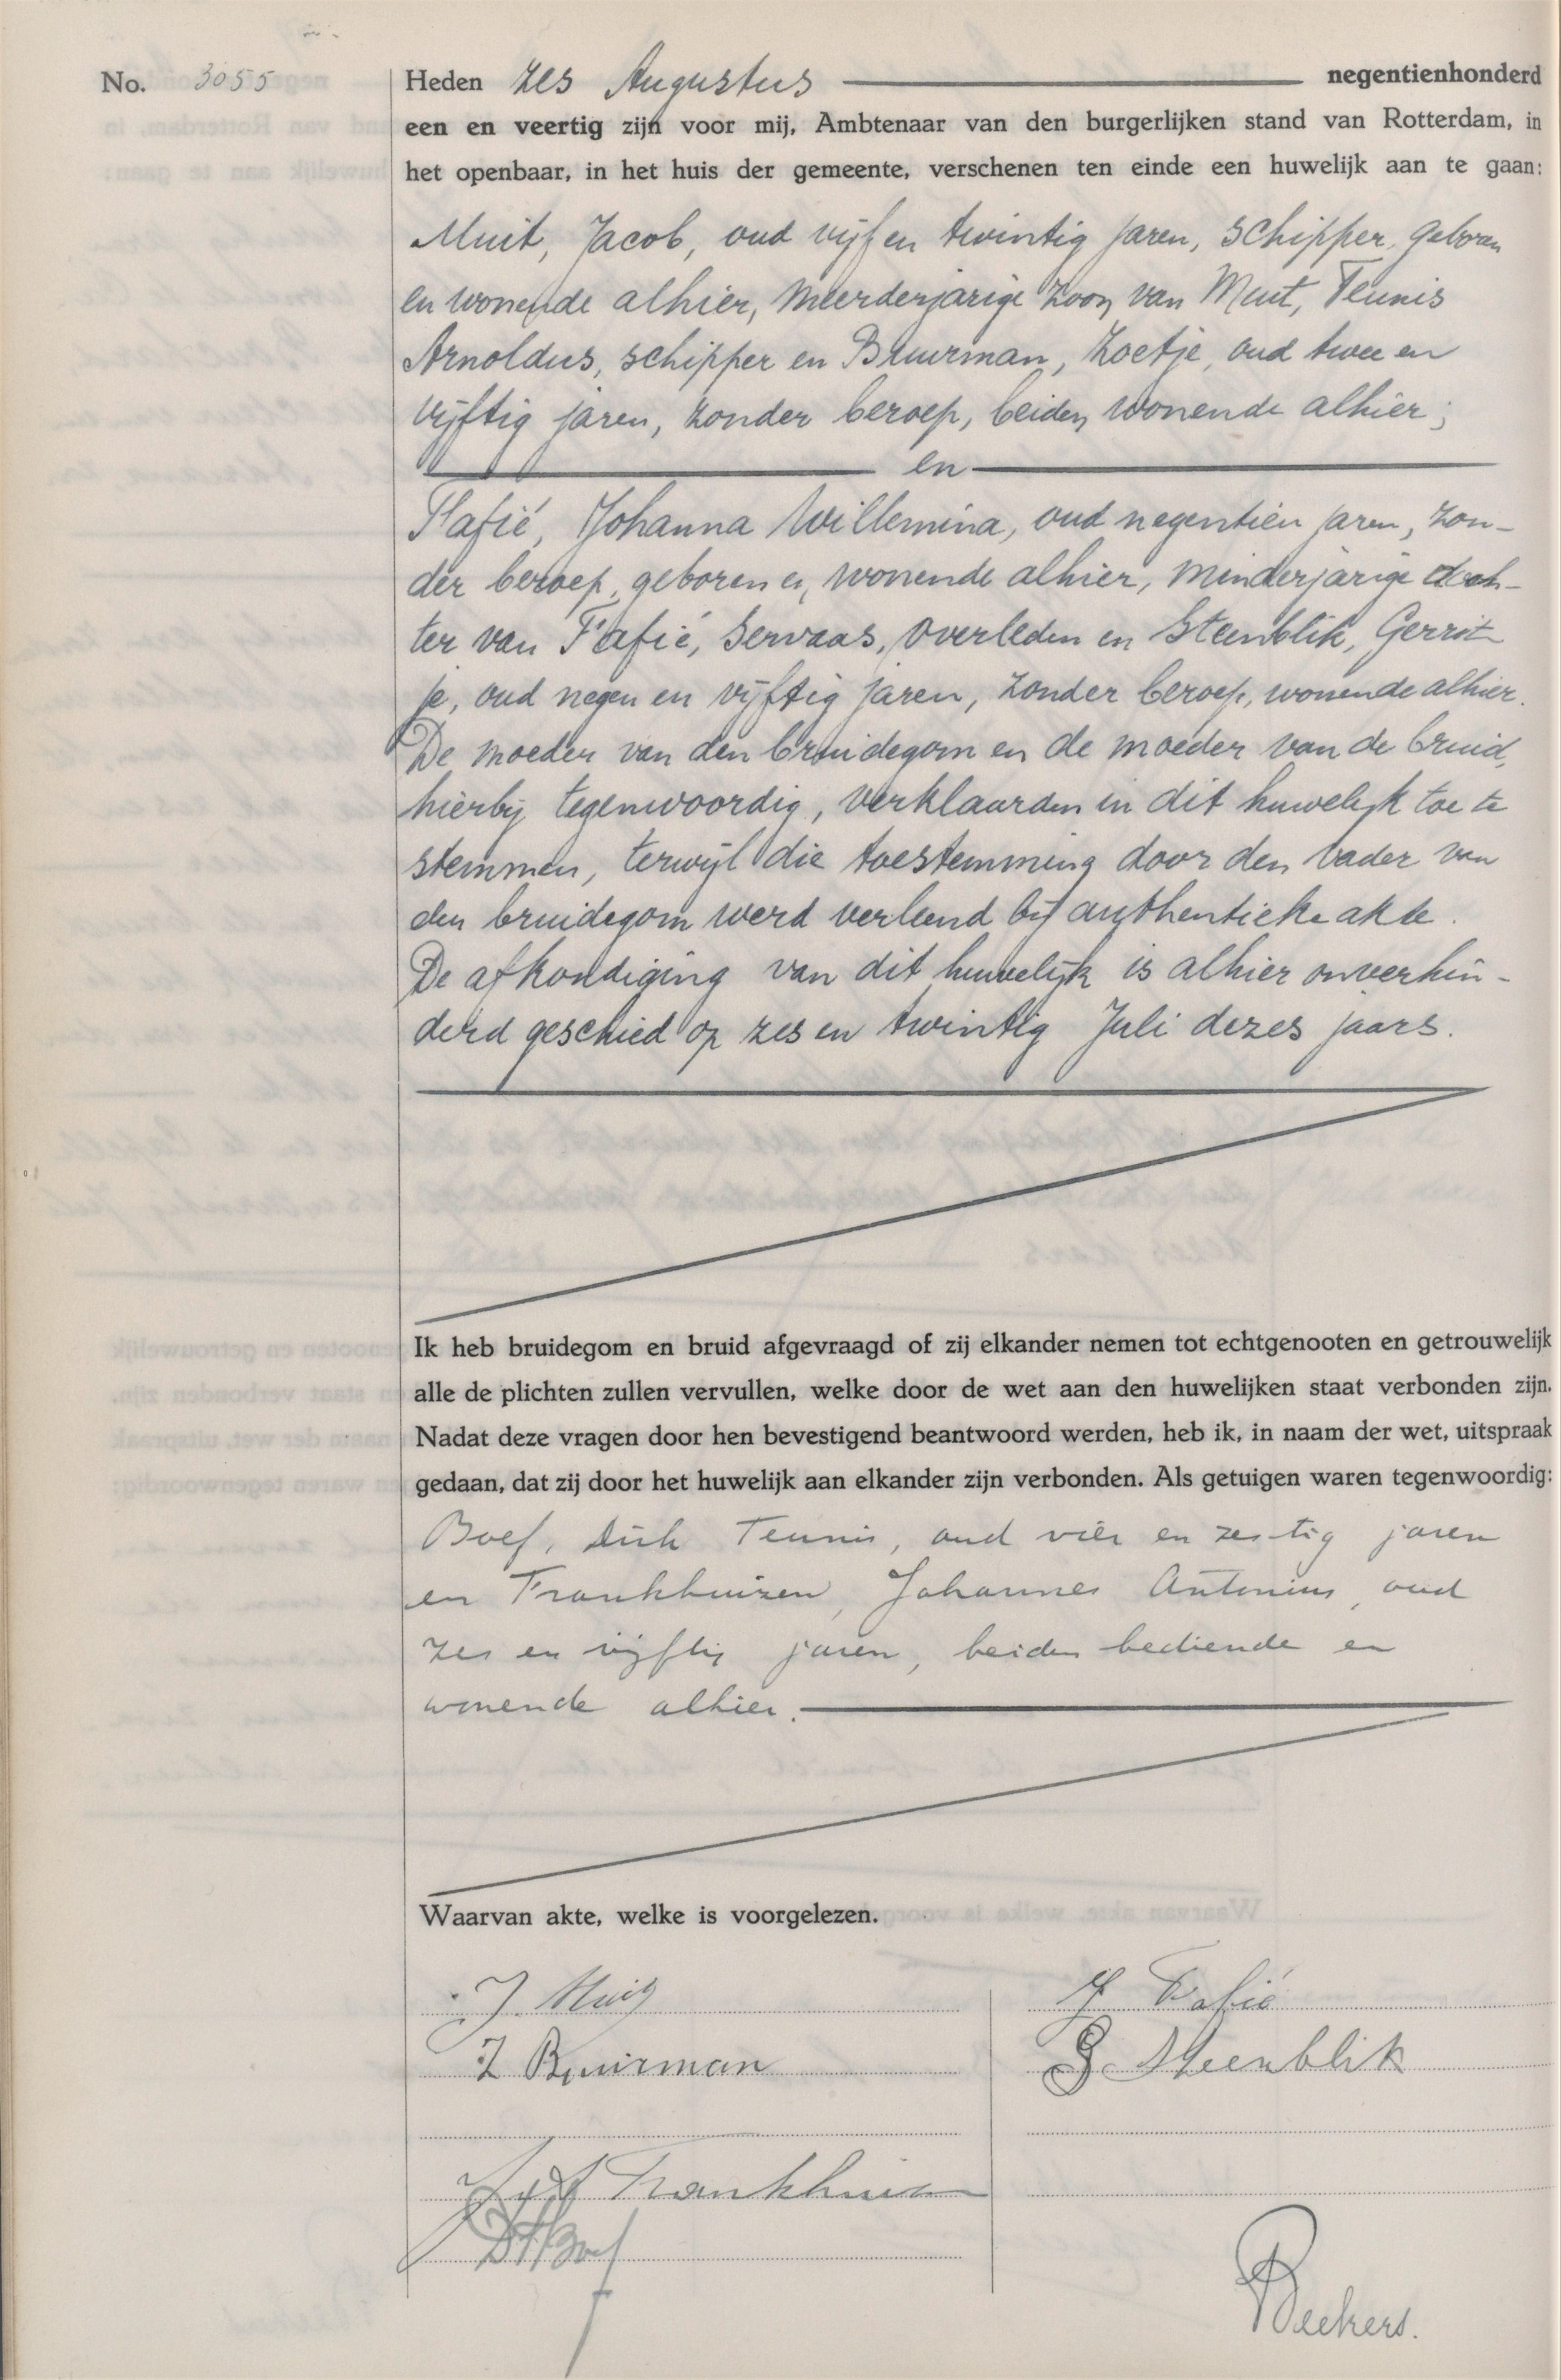 No. 3055
Heden zes Augustus negentienhonderd
een en veertig zijn voor mij, Ambtenaar van den burgerlijken stand van Rotterdam, in
het openbaar, in het huis der gemeente, verschenen ten einde een huwelijk aan te gaan:
Muit, Jacob, oud vijf en twintig jaren, schipper, geboren
en wonende alhier, meerderjarige zoon van Muit, Teunis
Arnoldus, schipper en Bruurman, Zoetje, oud twee en
vijftig jaren, zonder beroep, beiden wonende alhier;
en
Fafié, Johanna Willemina, oud negentien jaren, zon-
der beroep, geboren en wonende alhier, minderjarige doch-
ter van Fafié, Servaas, overleden en Steenblik, Gerrit-
je, oud negen en vijftig jaren, zonder beroep, wonende alhier.
De moeder van den bruidegom en de moeder van de bruid,
hierbij tegenwoordig, verklaarden in dit huwelijk toe te
stemmen, terwijl die toestemming door den vader van
den bruidegom werd verleend bij authentieke akte.
De afkondiging van dit huwelijk is alhier onverhin-
derd geschied op zes en twintig Juli dezes jaars.
Ik heb bruidegom en bruid afgevraagd of zij elkander nemen tot echtgenooten en getrouwelijk
alle de plichten zullen vervullen, welke door de wet aan den huwelijken staat verbonden zijn.
Nadat deze vragen door hen bevestigend beantwoord werden, heb ik, in naam der wet, uitspraak
gedaan, dat zij door het huwelijk aan elkander zijn verbonden. Als getuigen waren tegenwoordig:
Boef, Dirk Teunis, oud vier en zestig jaren
en Frankhuizen, Johannes Antonius, oud
zes en vijftig jaren, beiden bediende en
wonende alhier.
Waarvan akte, welke is voorgelezen.
J. Muit
J Fafié
Z Bruurman
G. Steenblik
Frankhuizen
DTBoef
Beekers.